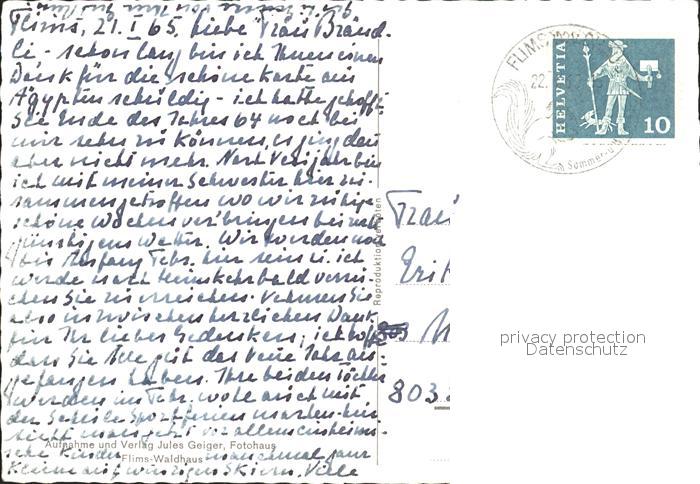 Flims, 21. I 65. Liebe Frau Bränd-
li - schon lang bin ich Ihnen einen
Dank für die schöne Karte aus
Ägypten schuldig - ich hatte gehofft
Sie Ende des Jahres 64 noch bei
mir sehn zu können, es ging dan
aber nicht mehr. Nach Neujahr bin
ich mit meiner Schwester hier zu-
sammengetroffen wo wir ruhige
schöne Wochen verbringen bei
günstigem Wetter. Wir werden noch
bis Anfang Febr. hier sein u. ich
werde nach Heimkehr bald versu-
chen Sie zu erreichen. Nehmen Sie
also inzwischen herzlichen Dank
für Ihr liebes Gedenken, ich hoffe
dass Sie Alle gut das Neue Jahr an-
gefangen haben. Ihre beiden Töchter
werden im Febr. wohl auch mit
der Schule Sportferien machen - hier
sieht man jetzt vor allem einheimi-
sche Kinder manchmal ganz
Kleine auf winzigen Skiern. Viele
Aufnahme und Verlag Jules Geiger, Fotohaus
Flims-Waldhaus
Reproduktion verboten
FLIMS
22.
Sommer
HELVETIA
10
Frau
Eri
803
privacy protection
Datenschutz